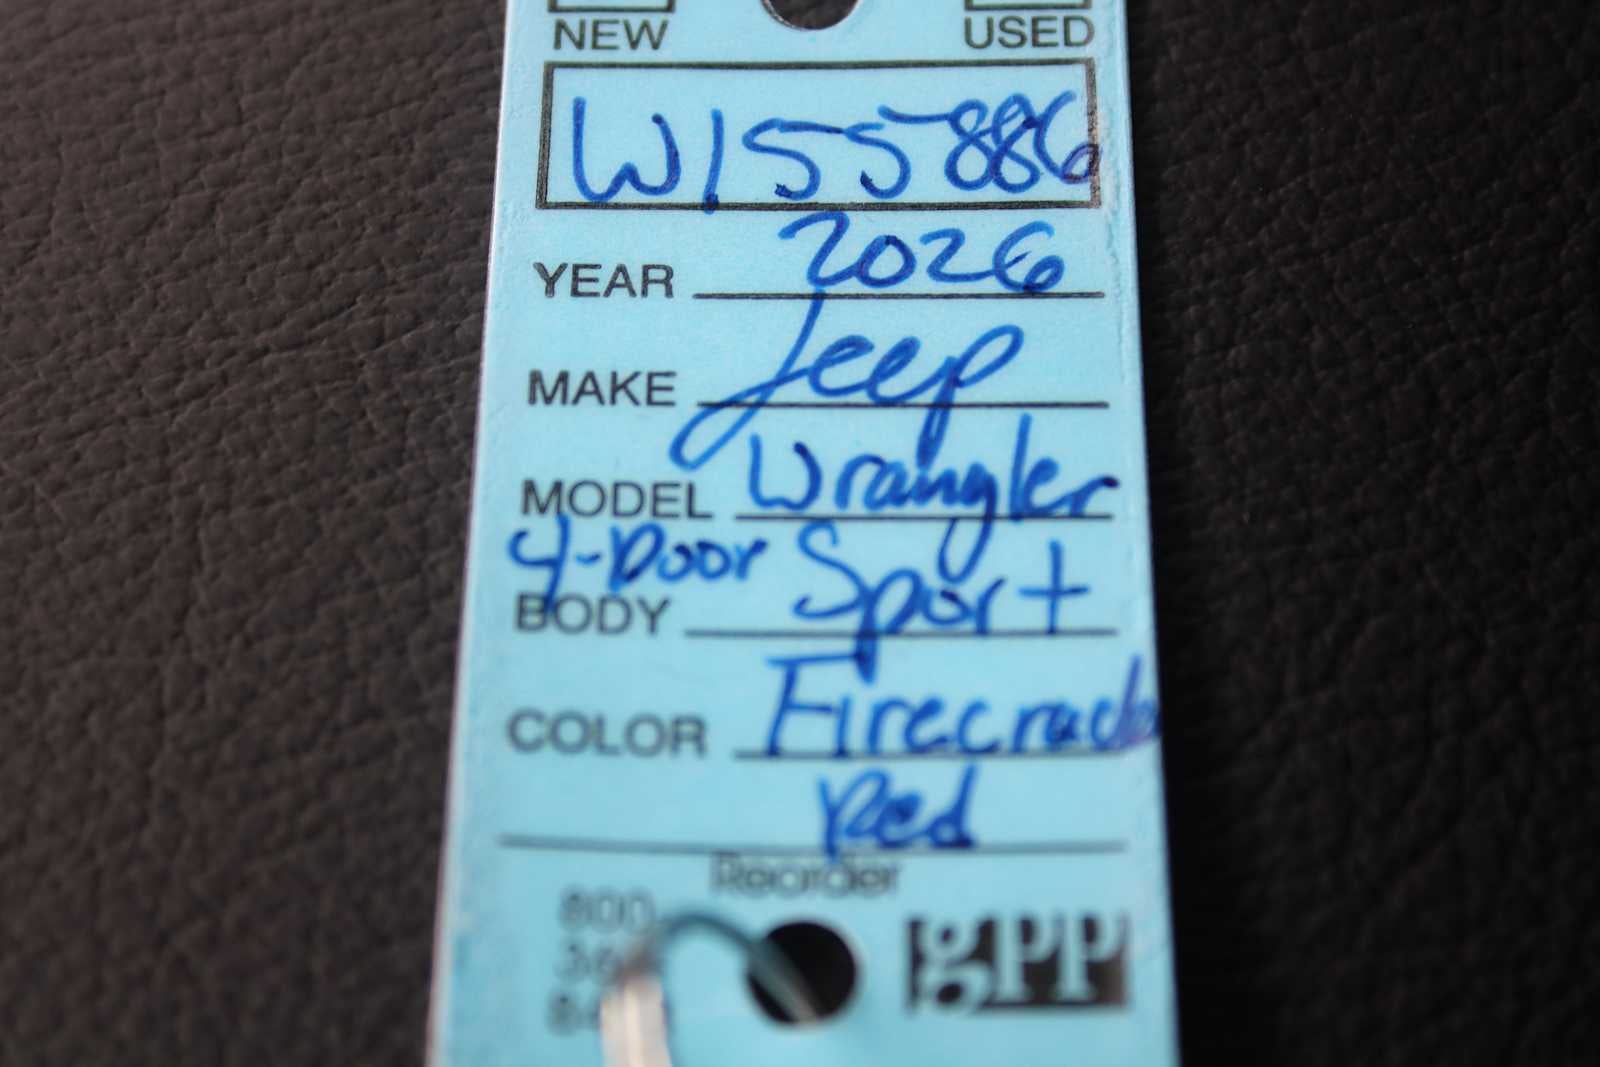 NEW USED
W155886
YEAR 2026
MAKE Jeep
MODEL Wrangler
4-Door Sport
BODY
COLOR Firecracker
Red
Reorder
800
gpp